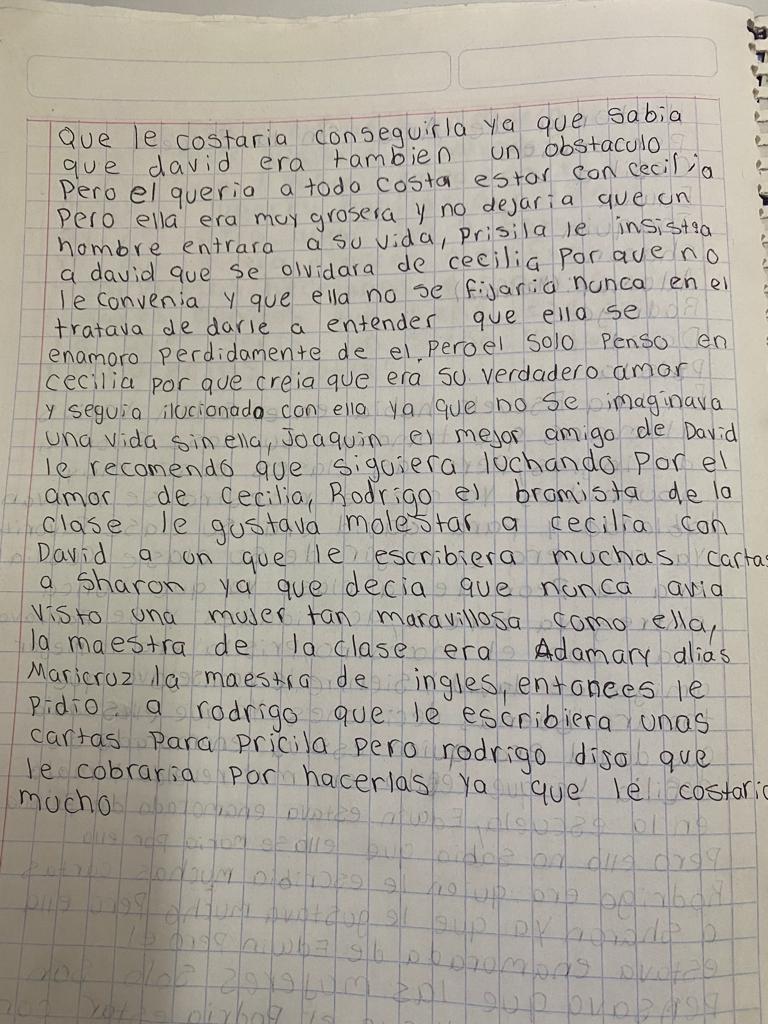 que le costaria conseguirla ya que sabia
que david era tambien un obstaculo
Pero el queria a todo costa estar con cecilia
Pero ella era muy grosera y no dejaria que un
hombre entrara a su vida, prisila le insistia
a david que se olvidara de cecilia por que no
le convenia y que ella no se fijaria nunca en el
tratava de darle a entender que ella se
enamoro perdidamente de el, pero el solo penso en
cecilia por que creia que era su verdadero amor
y seguia ilucionado con ella ya que no se imaginava
una vida sin ella, Joaquin el mejor amigo de David
le recomendo que siguiera luchando por el
amor de cecilia, Rodrigo el bromista de la
clase le gustava molestar a cecilia con
David a un que le escribiera muchas cartas
a sharon ya que decia que nunca avia
visto una mujer tan maravillosa como ella,
la maestra de la clase era Adamary alias
Maricruz la maestra de ingles, entonces le
pidio a rodrigo que le escribiera unas
cartas para pricila pero rodrigo dijo que
le cobraria por hacerlas ya que le costaria
mucho